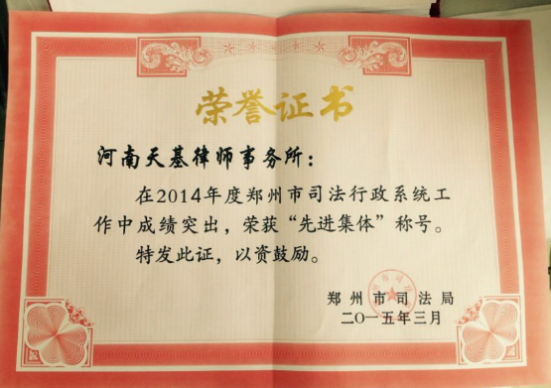 荣誉证书
河南天基律师事务所：
在2014年度郑州市司法行政系统工
作中成绩突出，荣获“先进集体”称号。
特发此证，以资鼓励。
郑州市司法局
二〇一五年三月